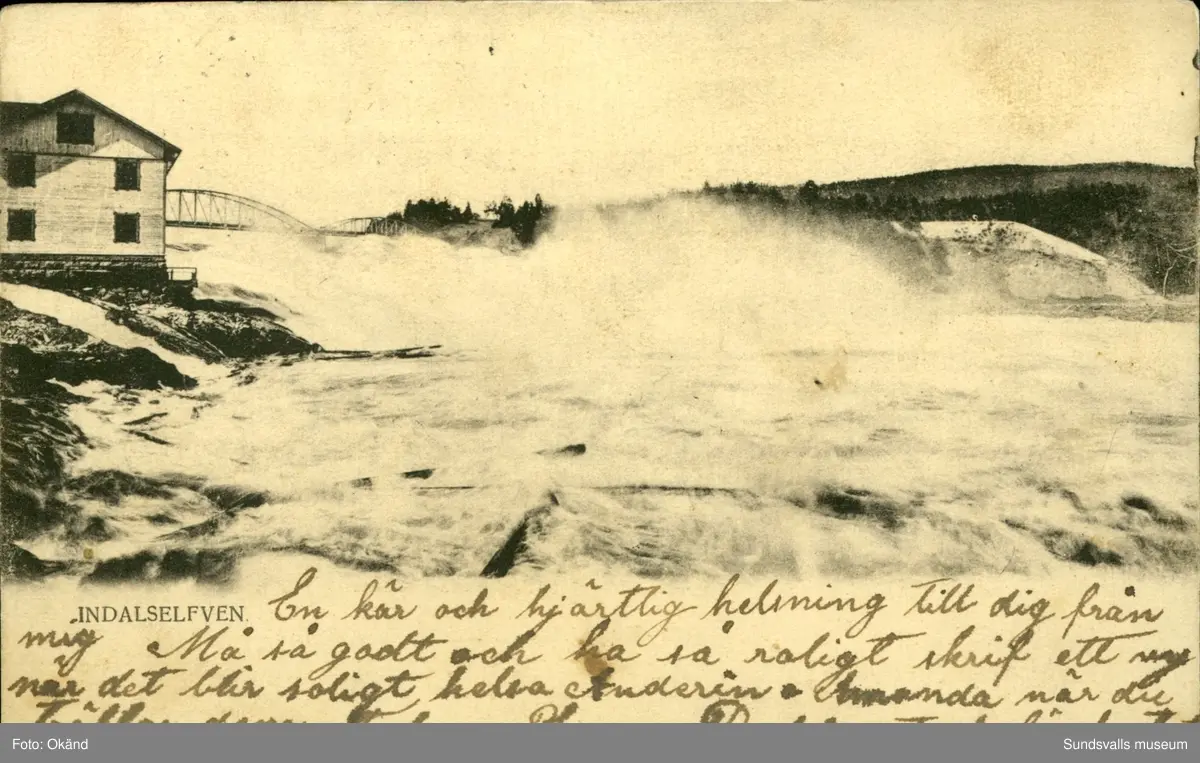 INDALSELFVEN.
En kär och hjärtlig helsning till dig från
mig Må så godt och ha så roligt skrif ett
när det blir soligt helsa när du
Foto: Okänd
Sundsvalls museum